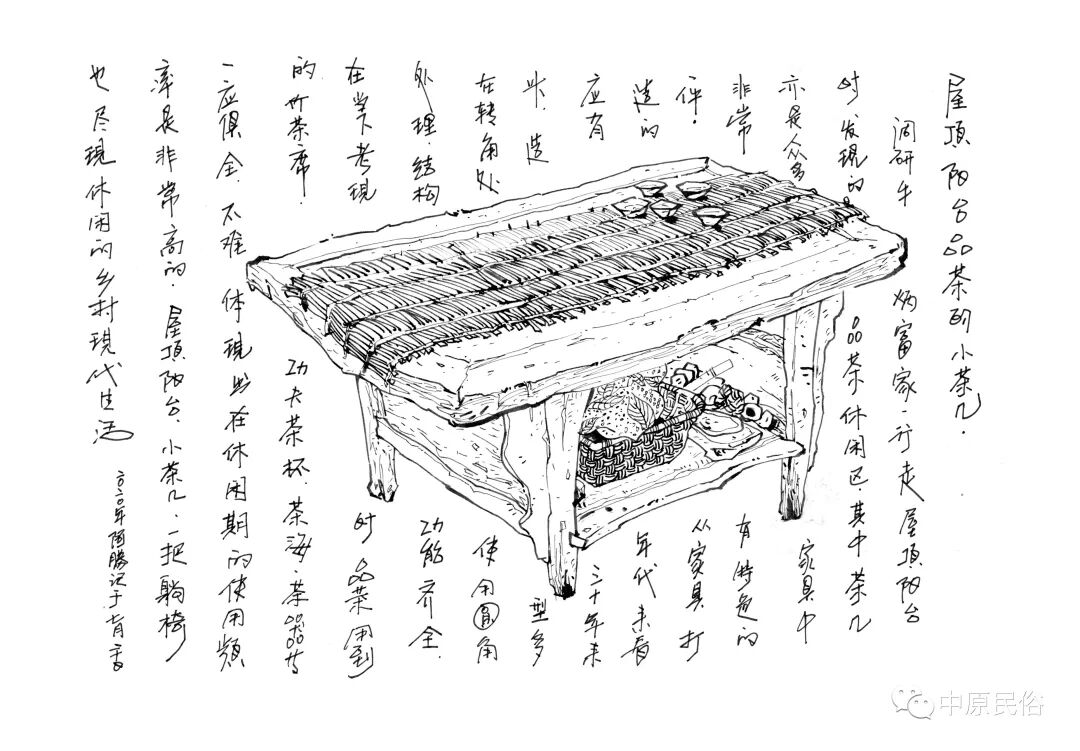 屋頂阳台品茶的小茶几.
调研牛炳富家一行走屋頂阳台
时发现的品茶休闲区.其中茶几
亦是众多家具中
非常有特色的
一件.从家具打
造的年代来看
应有三十年来
造型多
在转角处使用圆角
处理.结构功能齐全.
在現时品茶用到
的竹茶席.功夫茶杯.茶海.茶器等
一应俱全.不难体現出在休闲期的使用頻
率是非常高的.屋頂阳台.小茶几.一把躺椅
也尽現休闲的乡村現代生活
二〇二〇年勝记于七月
中原民俗